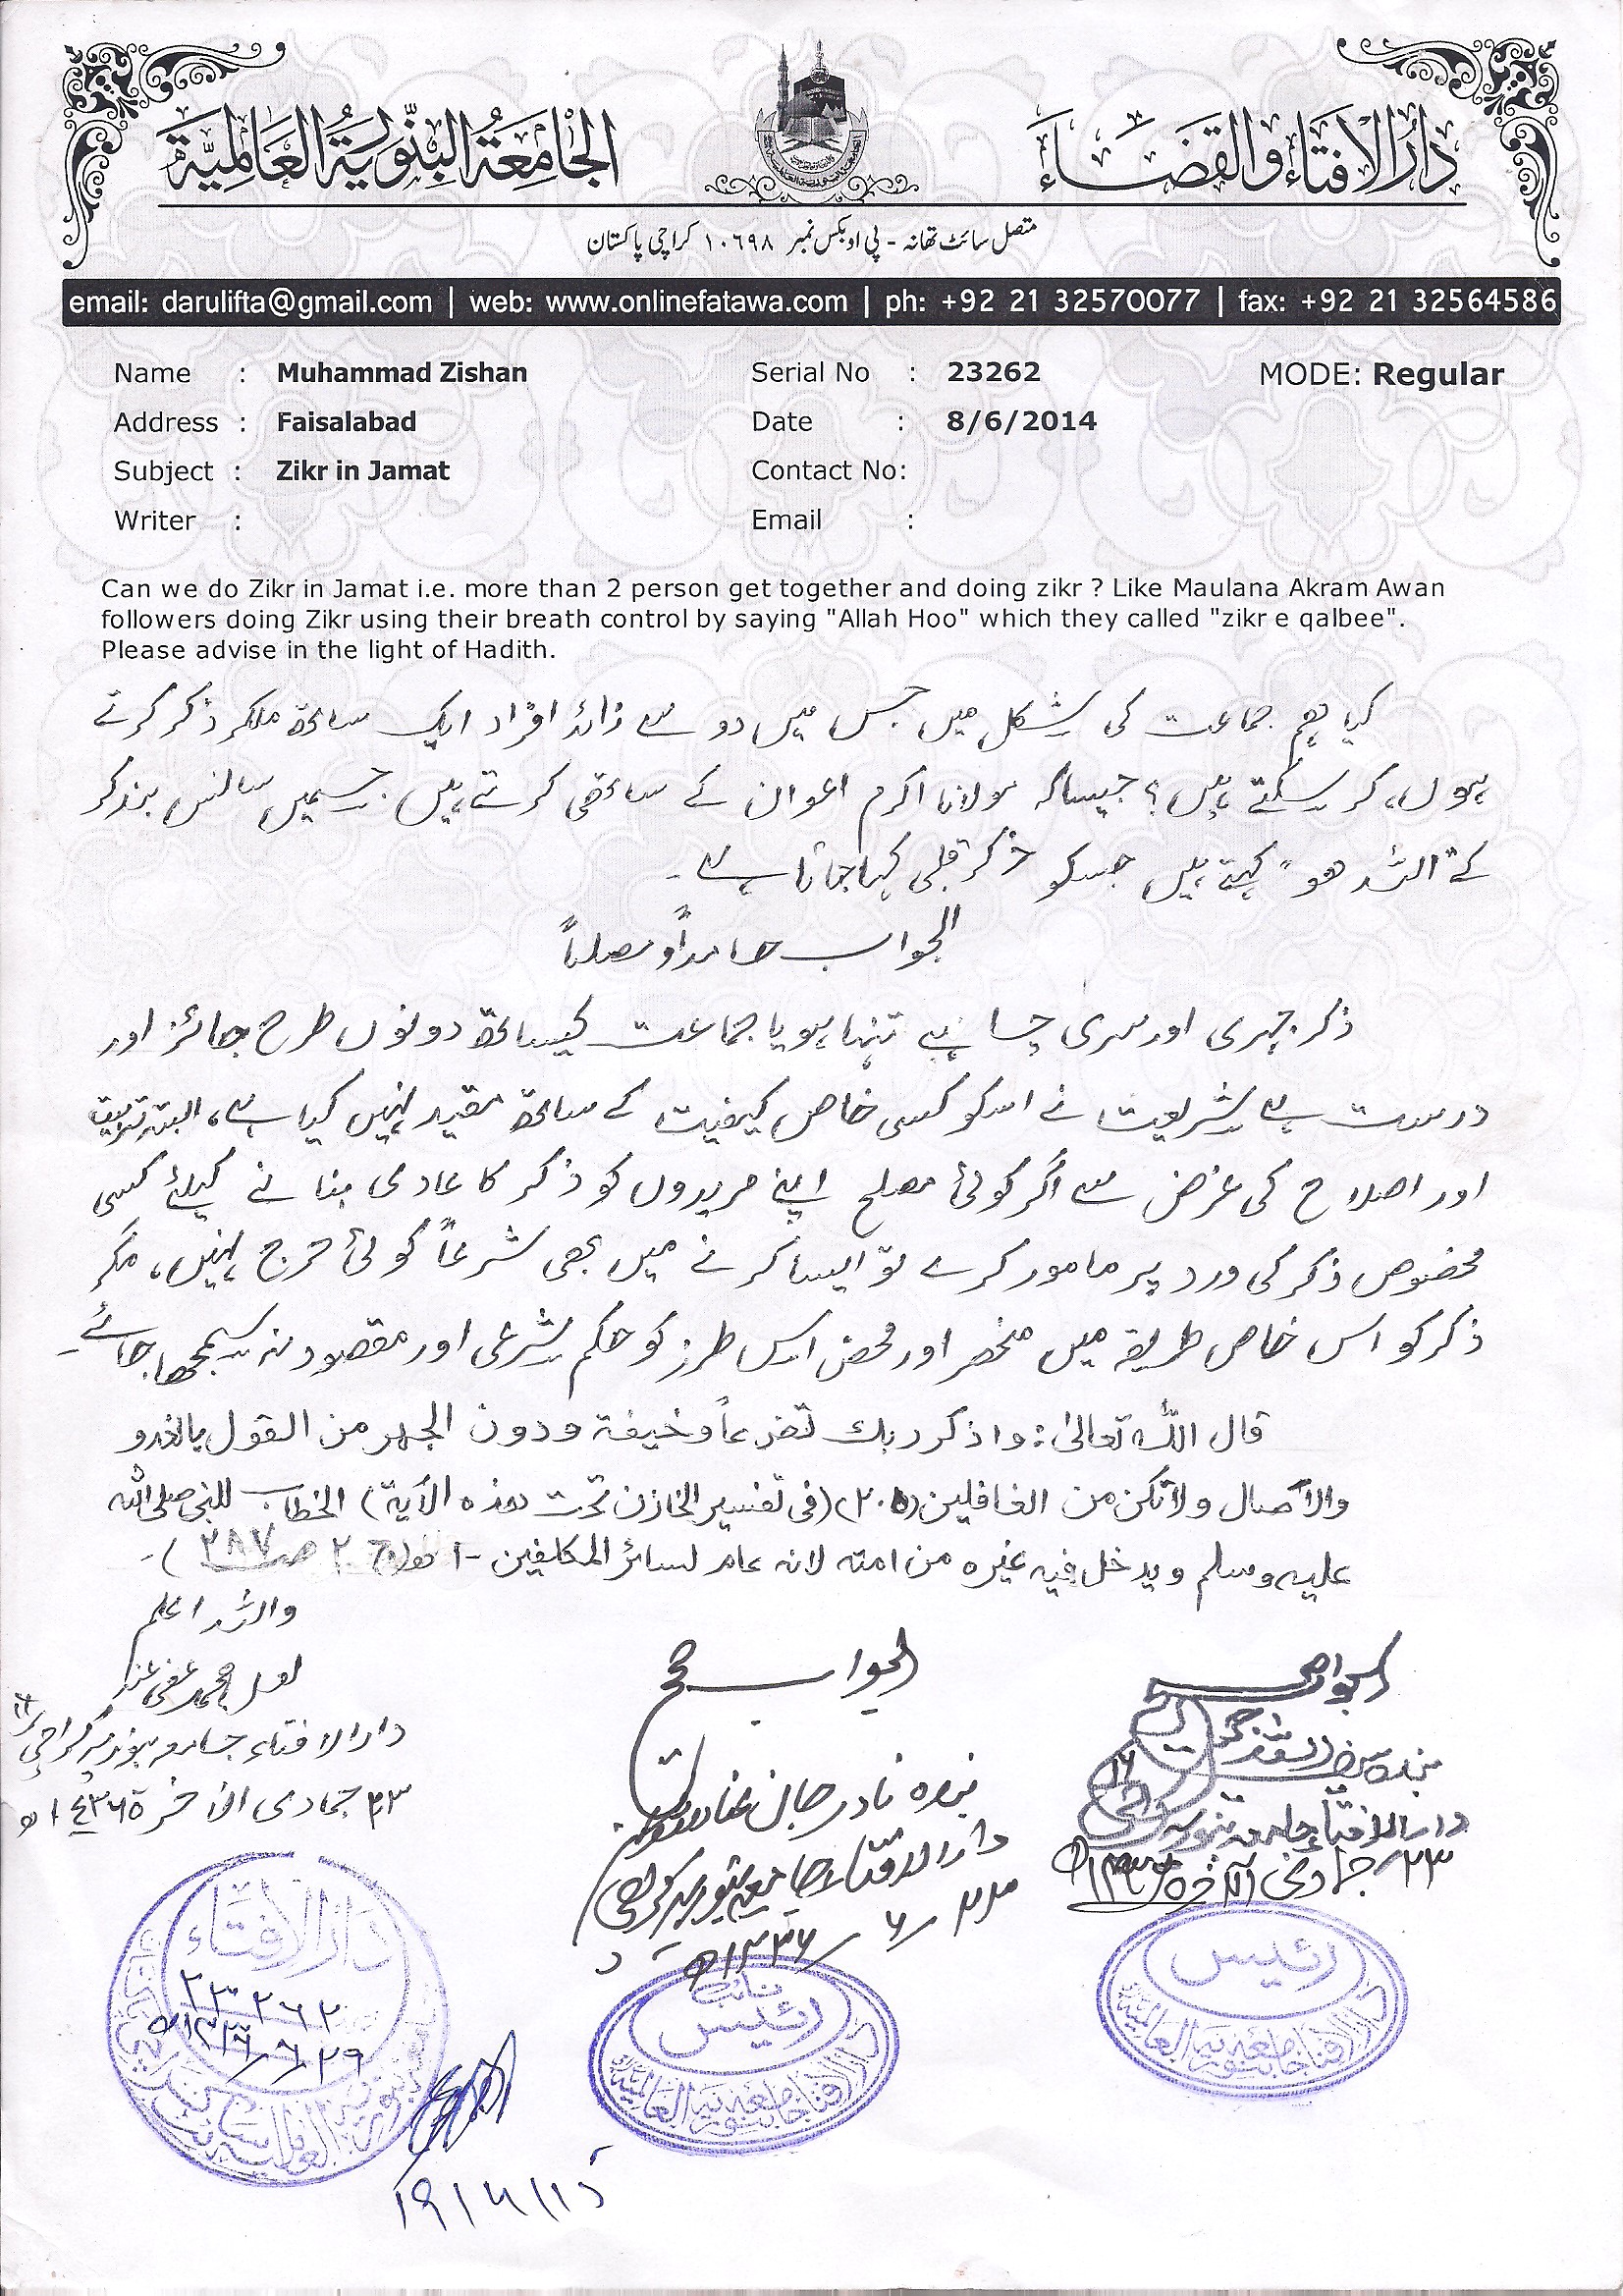 دارُ الافتاء والقضاء
الجامعۃ البنّوریۃ العالمیۃ
متصل سائٹ تھانہ - پی او بکس نمبر ۱۰۶۹۸ کراچی پاکستان
email: darulifta@gmail.com | web: www.onlinefatawa.com | ph: +92 21 32570077 | fax: +92 21 32564586
Name : Muhammad Zishan Serial No : 23262 MODE: Regular
Address : Faisalabad Date : 8/6/2014
Subject : Zikr in Jamat Contact No:
Writer : Email :
Can we do Zikr in Jamat i.e. more than 2 person get together and doing zikr ? Like Maulana Akram Awan
followers doing Zikr using their breath control by saying "Allah Hoo" which they called "zikr e qalbee".
Please advise in the light of Hadith.
کیا ہم جماعت کی شکل میں جس میں دو سے زائد افراد ایک ساتھ ملکر ذکر کرتے
ہوں، کر سکتے ہیں؟ جیساکہ مولانا اکرم اعوان کے ساتھی کرتے ہیں، جسمیں سانس بند کر
کے اللہ ھو" کہتے ہیں جسکو ذکر قلبی کہا جاتا ہے۔
الجواب حامداً و مصلیاً
ذکر جہری اور سری چاہے تنہا ہو یا جماعت کیساتھ دونوں طرح جائز اور
درست ہے شریعت نے اسکو کسی خاص کیفیت کے ساتھ مقید نہیں کیا ہے، البتہ تربیت
اور اصلاح کی غرض سے اگر کوئی مصلح اپنے مریدوں کو ذکر کا عادی بنانے کیلئے کسی
مخصوص ذکر کی ورد پر مامور کرے تو ایسا کرنے میں بھی شرعاً کوئی حرج نہیں، مگر
ذکر کو اس خاص طریقہ میں منحصر اور محض اس طرز کو حکم شرعی اور مقصود نہ سمجھا جائے۔
قال اللہ تعالیٰ: واذکر ربک تضرعاً وخیفۃ ودون الجہر من القول بالغدو
والآصال ولا تکن من الغافلین (۲۰۵) (فی تفسیر الخازن تحت ھذہ الآیۃ) الخطاب للنبی صلی اللہ
علیہ وسلم ویدخل فیہ غیرہ من امتہ لانہ عام لسائر المکلفین - اھ (ج ۲ صـ ۲۸۷)۔
واللہ اعلم
لعل محمد عفی عنہ
دارالافتاء جامعہ بنوریہ کراچی
۲۳ جمادی الاخرۃ ۱٤۳٦ھ
الجواب صحیح
بندہ نادر جان
دارالافتاء جامعہ بنوریہ کراچی
۲۳/۶/۱۴۳۶ھ
الجواب صحیح
بندہ
دارالافتاء جامعہ بنوریہ
۲۳ جمادی الآخرۃ
دارالافتاء
۲۳۲۶۲
۲۹/۶/۱۴۳۶ھ
نائب
رئیس
دارالافتاء جامعہ بنوریہ العالمیہ
رئیس
دارالافتاء جامعہ بنوریہ العالمیہ